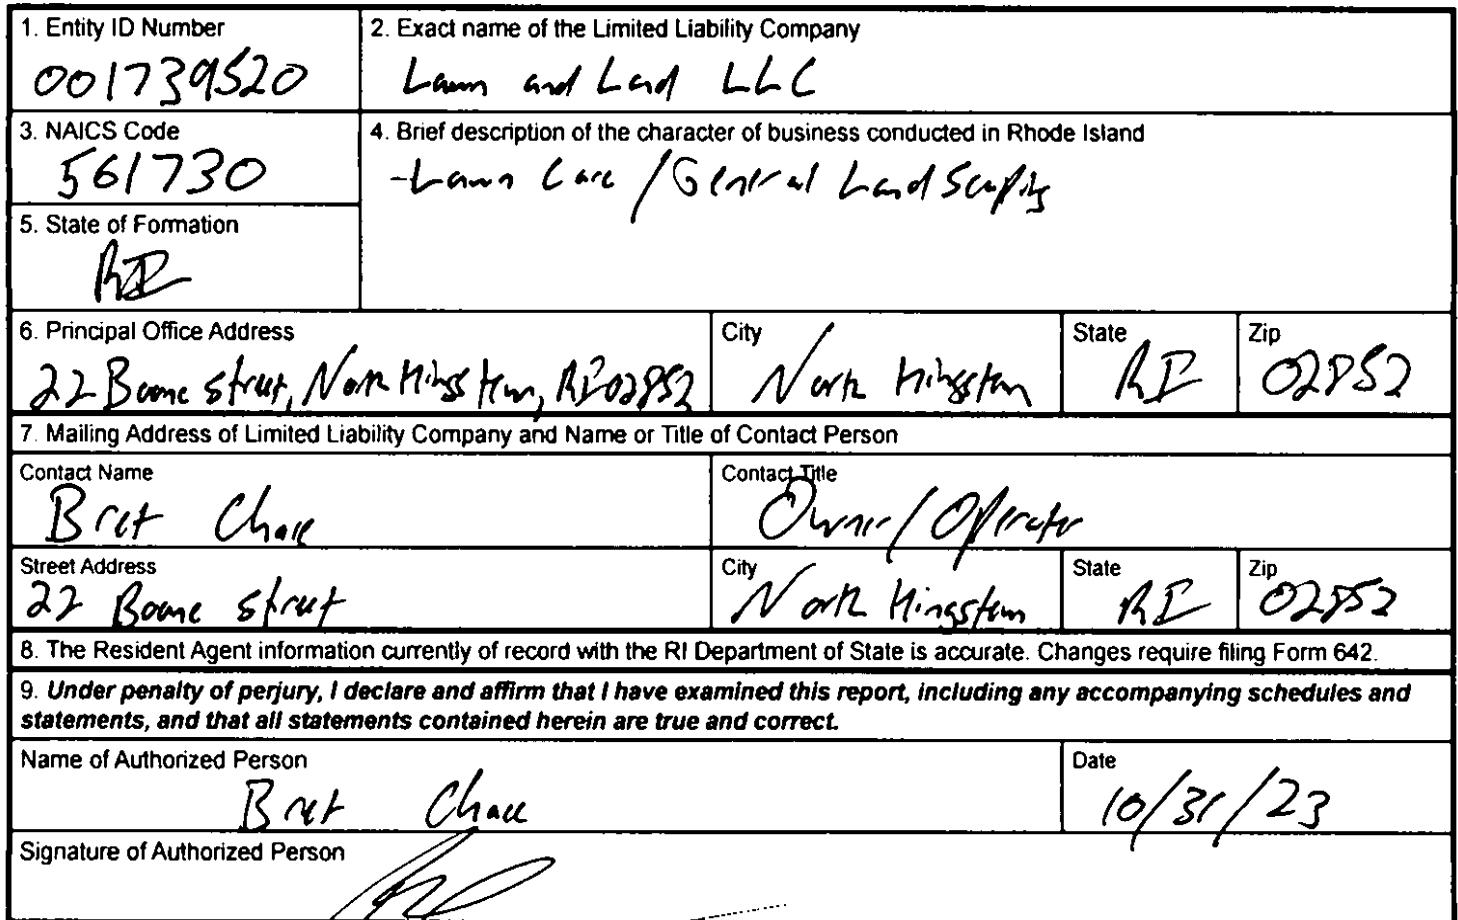 1. Entity ID Number
001739520
2. Exact name of the Limited Liability Company
Lawn and Land LLC
3. NAICS Code
561730
4. Brief description of the character of business conducted in Rhode Island
-Lawn Care / General Landscaping
5. State of Formation
RI
6. Principal Office Address
22 Boone street, North Kingstown, RI 02852
City
North Kingstown
State
RI
Zip
02852
7. Mailing Address of Limited Liability Company and Name or Title of Contact Person
Contact Name
Bret Chace
Contact Title
Owner/Operator
Street Address
22 Boone street
City
North Kingstown
State
RI
Zip
02852
8. The Resident Agent information currently of record with the RI Department of State is accurate. Changes require filing Form 642.
9. Under penalty of perjury, I declare and affirm that I have examined this report, including any accompanying schedules and
statements, and that all statements contained herein are true and correct.
Name of Authorized Person
Bret Chace
Date
10/31/23
Signature of Authorized Person